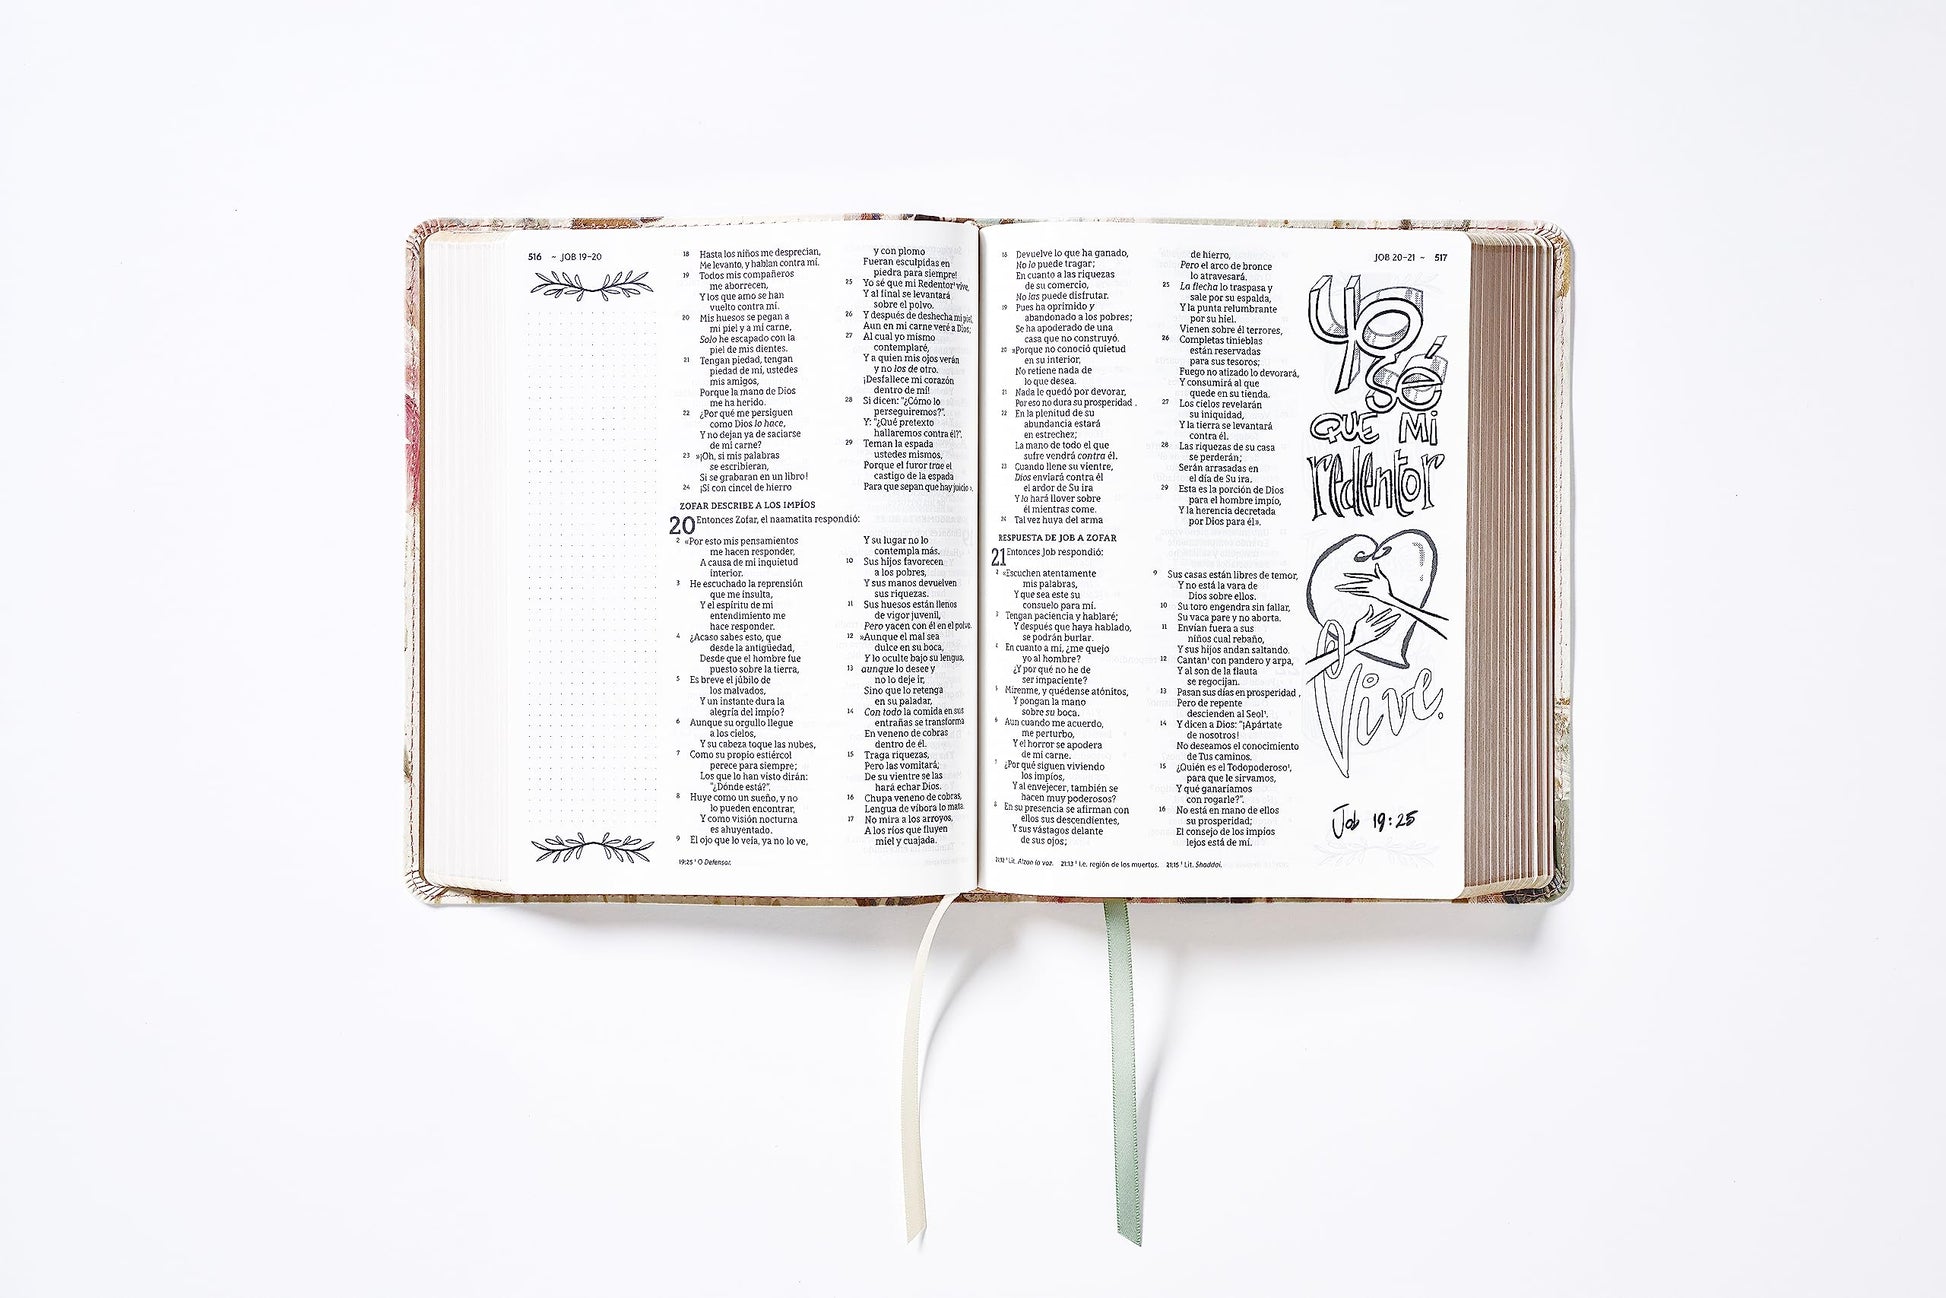 516 ~ JOB 19–20
18 Hasta los niños me desprecian,
Me levanto, y hablan contra mí.
19 Todos mis compañeros
me aborrecen,
Y los que amo se han
vuelto contra mí.
20 Mis huesos se pegan a
mi piel y a mi carne,
Solo he escapado con la
piel de mis dientes.
21 Tengan piedad, tengan
piedad de mí, ustedes
mis amigos,
Porque la mano de Dios
me ha herido.
22 ¿Por qué me persiguen
como Dios lo hace,
Y no dejan ya de saciarse
de mi carne?
23 »¡Oh, si mis palabras
se escribieran,
Si se grabaran en un libro!
24 ¡Si con cincel de hierro
y con plomo
Fueran esculpidas en
piedra para siempre!
25 Yo sé que mi Redentor¹ vive,
Y al final se levantará
sobre el polvo.
26 Y después de deshecha mi piel,
Aun en mi carne veré a Dios;
27 Al cual yo mismo
contemplaré,
Y a quien mis ojos verán
y no los de otro.
¡Desfallece mi corazón
dentro de mí!
28 Si dicen: "¿Cómo lo
perseguiremos?".
Y: "¿Qué pretexto
hallaremos contra él?".
29 Teman la espada
ustedes mismos,
Porque el furor trae el
castigo de la espada
Para que sepan que hay juicio».
ZOFAR DESCRIBE A LOS IMPÍOS
20 Entonces Zofar, el naamatita respondió:
2 «Por esto mis pensamientos
me hacen responder,
A causa de mi inquietud
interior.
3 He escuchado la reprensión
que me insulta,
Y el espíritu de mi
entendimiento me
hace responder.
4 ¿Acaso sabes esto, que
desde la antigüedad,
Desde que el hombre fue
puesto sobre la tierra,
5 Es breve el júbilo de
los malvados,
Y un instante dura la
alegría del impío?
6 Aunque su orgullo llegue
a los cielos,
Y su cabeza toque las nubes,
7 Como su propio estiércol
perece para siempre;
Los que lo han visto dirán:
"¿Dónde está?".
8 Huye como un sueño, y no
lo pueden encontrar,
Y como visión nocturna
es ahuyentado.
9 El ojo que lo veía, ya no lo ve,
Y su lugar no lo
contempla más.
10 Sus hijos favorecen
a los pobres,
Y sus manos devuelven
sus riquezas.
11 Sus huesos están llenos
de vigor juvenil,
Pero yacen con él en el polvo.
12 »Aunque el mal sea
dulce en su boca,
Y lo oculte bajo su lengua,
13 aunque lo desee y
no lo deje ir,
Sino que lo retenga
en su paladar,
14 Con todo la comida en sus
entrañas se transforma
En veneno de cobras
dentro de él.
15 Traga riquezas,
Pero las vomitará;
De su vientre se las
hará echar Dios.
16 Chupa veneno de cobras,
Lengua de víbora lo mata.
17 No mira a los arroyos,
A los ríos que fluyen
miel y cuajada.
19:25 ¹ O Defensor.
JOB 20–21 ~ 517
18 Devuelve lo que ha ganado,
No lo puede tragar;
En cuanto a las riquezas
de su comercio,
No las puede disfrutar.
19 Pues ha oprimido y
abandonado a los pobres;
Se ha apoderado de una
casa que no construyó.
20 »Porque no conoció quietud
en su interior,
No retiene nada de
lo que desea.
21 Nada le quedó por devorar,
Por eso no dura su prosperidad.
22 En la plenitud de su
abundancia estará
en estrechez;
La mano de todo el que
sufre vendrá contra él.
23 Cuando llene su vientre,
Dios enviará contra él
el ardor de Su ira
Y lo hará llover sobre
él mientras come.
24 Tal vez huya del arma
de hierro,
Pero el arco de bronce
lo atravesará.
25 La flecha lo traspasa y
sale por su espalda,
Y la punta relumbrante
por su hiel.
Vienen sobre él terrores,
26 Completas tinieblas
están reservadas
para sus tesoros;
Fuego no atizado lo devorará,
Y consumirá al que
quede en su tienda.
27 Los cielos revelarán
su iniquidad,
Y la tierra se levantará
contra él.
28 Las riquezas de su casa
se perderán;
Serán arrasadas en
el día de Su ira.
29 Esta es la porción de Dios
para el hombre impío,
Y la herencia decretada
por Dios para él».
RESPUESTA DE JOB A ZOFAR
21 Entonces Job respondió:
2 «Escuchen atentamente
mis palabras,
Y que sea este su
consuelo para mí.
3 Tengan paciencia y hablaré;
Y después que haya hablado,
se podrán burlar.
4 En cuanto a mí, ¿me quejo
yo al hombre?
¿Y por qué no he de
ser impaciente?
5 Mírenme, y quédense atónitos,
Y pongan la mano
sobre su boca.
6 Aun cuando me acuerdo,
me perturbo,
Y el horror se apodera
de mi carne.
7 ¿Por qué siguen viviendo
los impíos,
Y al envejecer, también se
hacen muy poderosos?
8 En su presencia se afirman con
ellos sus descendientes,
Y sus vástagos delante
de sus ojos;
9 Sus casas están libres de temor,
Y no está la vara de
Dios sobre ellos.
10 Su toro engendra sin fallar,
Su vaca pare y no aborta.
11 Envían fuera a sus
niños cual rebaño,
Y sus hijos andan saltando.
12 Cantan¹ con pandero y arpa,
Y al son de la flauta
se regocijan.
13 Pasan sus días en prosperidad,
Pero de repente
descienden al Seol¹.
14 Y dicen a Dios: "¡Apártate
de nosotros!
No deseamos el conocimiento
de Tus caminos.
15 ¿Quién es el Todopoderoso¹,
para que le sirvamos,
Y qué ganaríamos
con rogarle?".
16 No está en mano de ellos
su prosperidad;
El consejo de los impíos
lejos está de mí.
21:12 ¹ Lit. Alzan la voz. 21:13 ¹ I.e. región de los muertos. 21:15 ¹ Lit. Shaddai.
Yo
sé
QUE MI
redentor
Vive.
Job 19:25